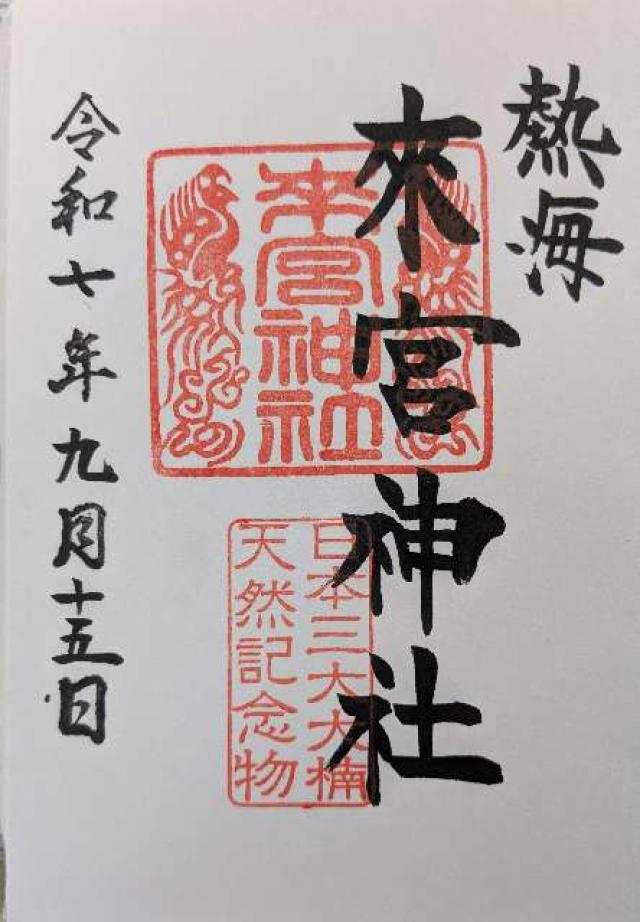 熱海
來宮神社
來宮神社
日本三大大楠
天然記念物
令和七年九月十五日